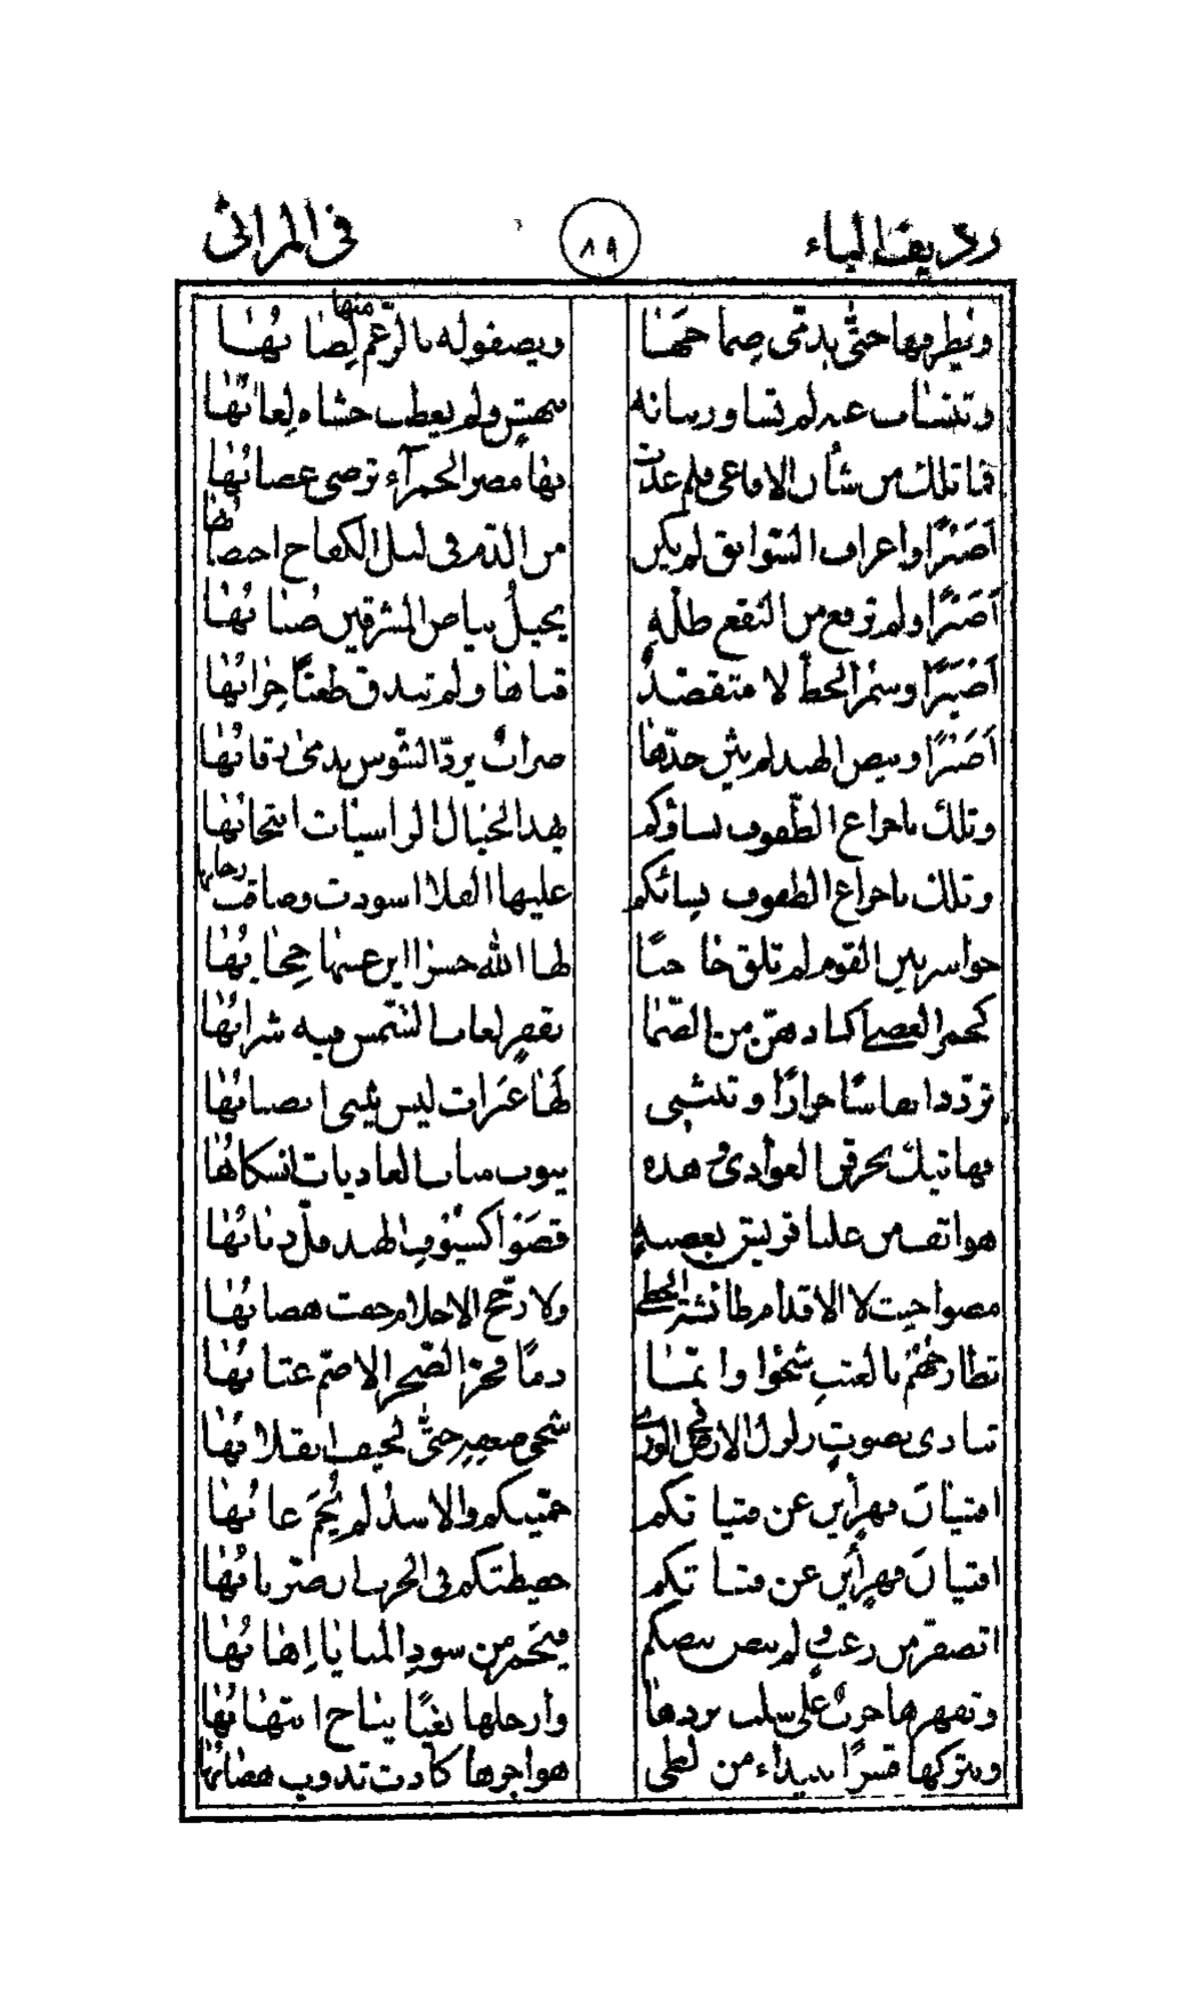 رديف الباء ٨٩ في المراثى
حتى بدمى ويصفو له بالرّغم منها
عنه لم تساور ولم يعطب حشاه لعابها
فما تلك من شأن الافاعى فلم غدت بها مضر الحمرآء ترضى غصابها
أصبرًا واعراف السّوابق لم يكن من الدّم فى ليل الكفاح اختضابها
أصبرًا ولم ترفع من النقع طلّةٍ يحيل بياض المشرقين ضبابها
أصبرًا وسمر الخطّ لا متقصّدٌ قناها ولم تندق طعنًا حرابها
أصبرًا وبيض الهند لم يثن حدّها ضرابٌ يردّ الشّوس تدمى رقابها
وتلك باجراع الطّفوف نساؤكم يهد الجبال الراسيات انتحابها
وتلك باجراع الطفوف نسائكم عليها الفلا اسودت وضاقت رحابها
حواسر بين القوم لم تلق حاجبًا لها الله حسرا اين عنها حجابها
كجمر الغضا اكبادهنّ من الظّما بقفرٍ لعاب الشّمس فيه شرابها
تردّد انفاسًا حرارًا وتنثنى لها عبرات ليس يثنى انصبابها
فهاتيك يحرقن الغوادى وهذه ينوب مناب الغاديات انسكابها
هواتف من عليا قريش بعصبةٍ قضوا كسيوف الهند فلّ ذبابها
مضوا حيث لا الاقدام طائشة الخطى ولا رجّح الاحلام خفت هضابها
تطارحهم بالعتب شجوا وانما دمًا فجّر الصّخر الاصمّ عتابها
تنادى بصوتٍ زلزل الارض فى الورى شجى ضعيفٍ حتّى لخيف انقلابها
افتيان فهرٍ أين عن فتياتكم حميّتكم والاسد لم يُحمَ غابها
افتيان فهرٍ أين عن فتياتكم حفيظتكم فى الحرب ان صرّ نابها
اتصفرّ من رعبٍ ولم تنض بيضكم فيحمر من سود المنايا إهابها
وتقهرها حربٌ على سلب بردها وأرحلها بغيًا يباح انتهابها
وتتركها قسرًا ببيداء من لظى هواجرها كادت تذوب هضابها